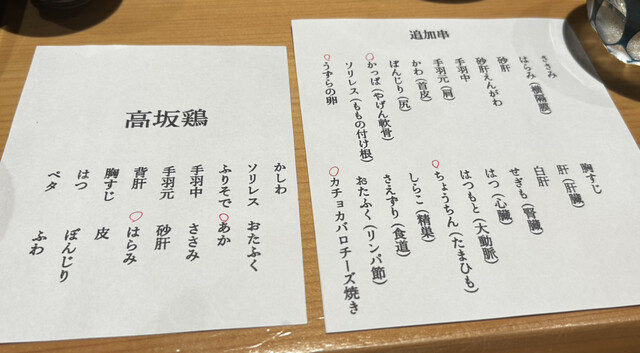 高坂鶏
かしわ
ソリレス
ふりそで
手羽中
手羽元
背肝
胸すじ
はつ
ペタ
おたふく
あか
ささみ
砂肝
はらみ
皮
ぼんじり
ふわ
追加串
ささみ
はらみ(横隔膜)
砂肝
砂肝えんがわ
手羽中
手羽元(肩)
かわ(首皮)
ぼんじり(尻)
かっぱ(やげん軟骨)
ソリレス(ももの付け根)
うずらの卵
胸すじ
肝(肝臓)
白肝
せぎも(腎臓)
はつ(心臓)
はつもと(大動脈)
ちょうちん(たまひも)
しらこ(精巣)
さえずり(食道)
おたふく(リンパ節)
カチョカバロチーズ焼き